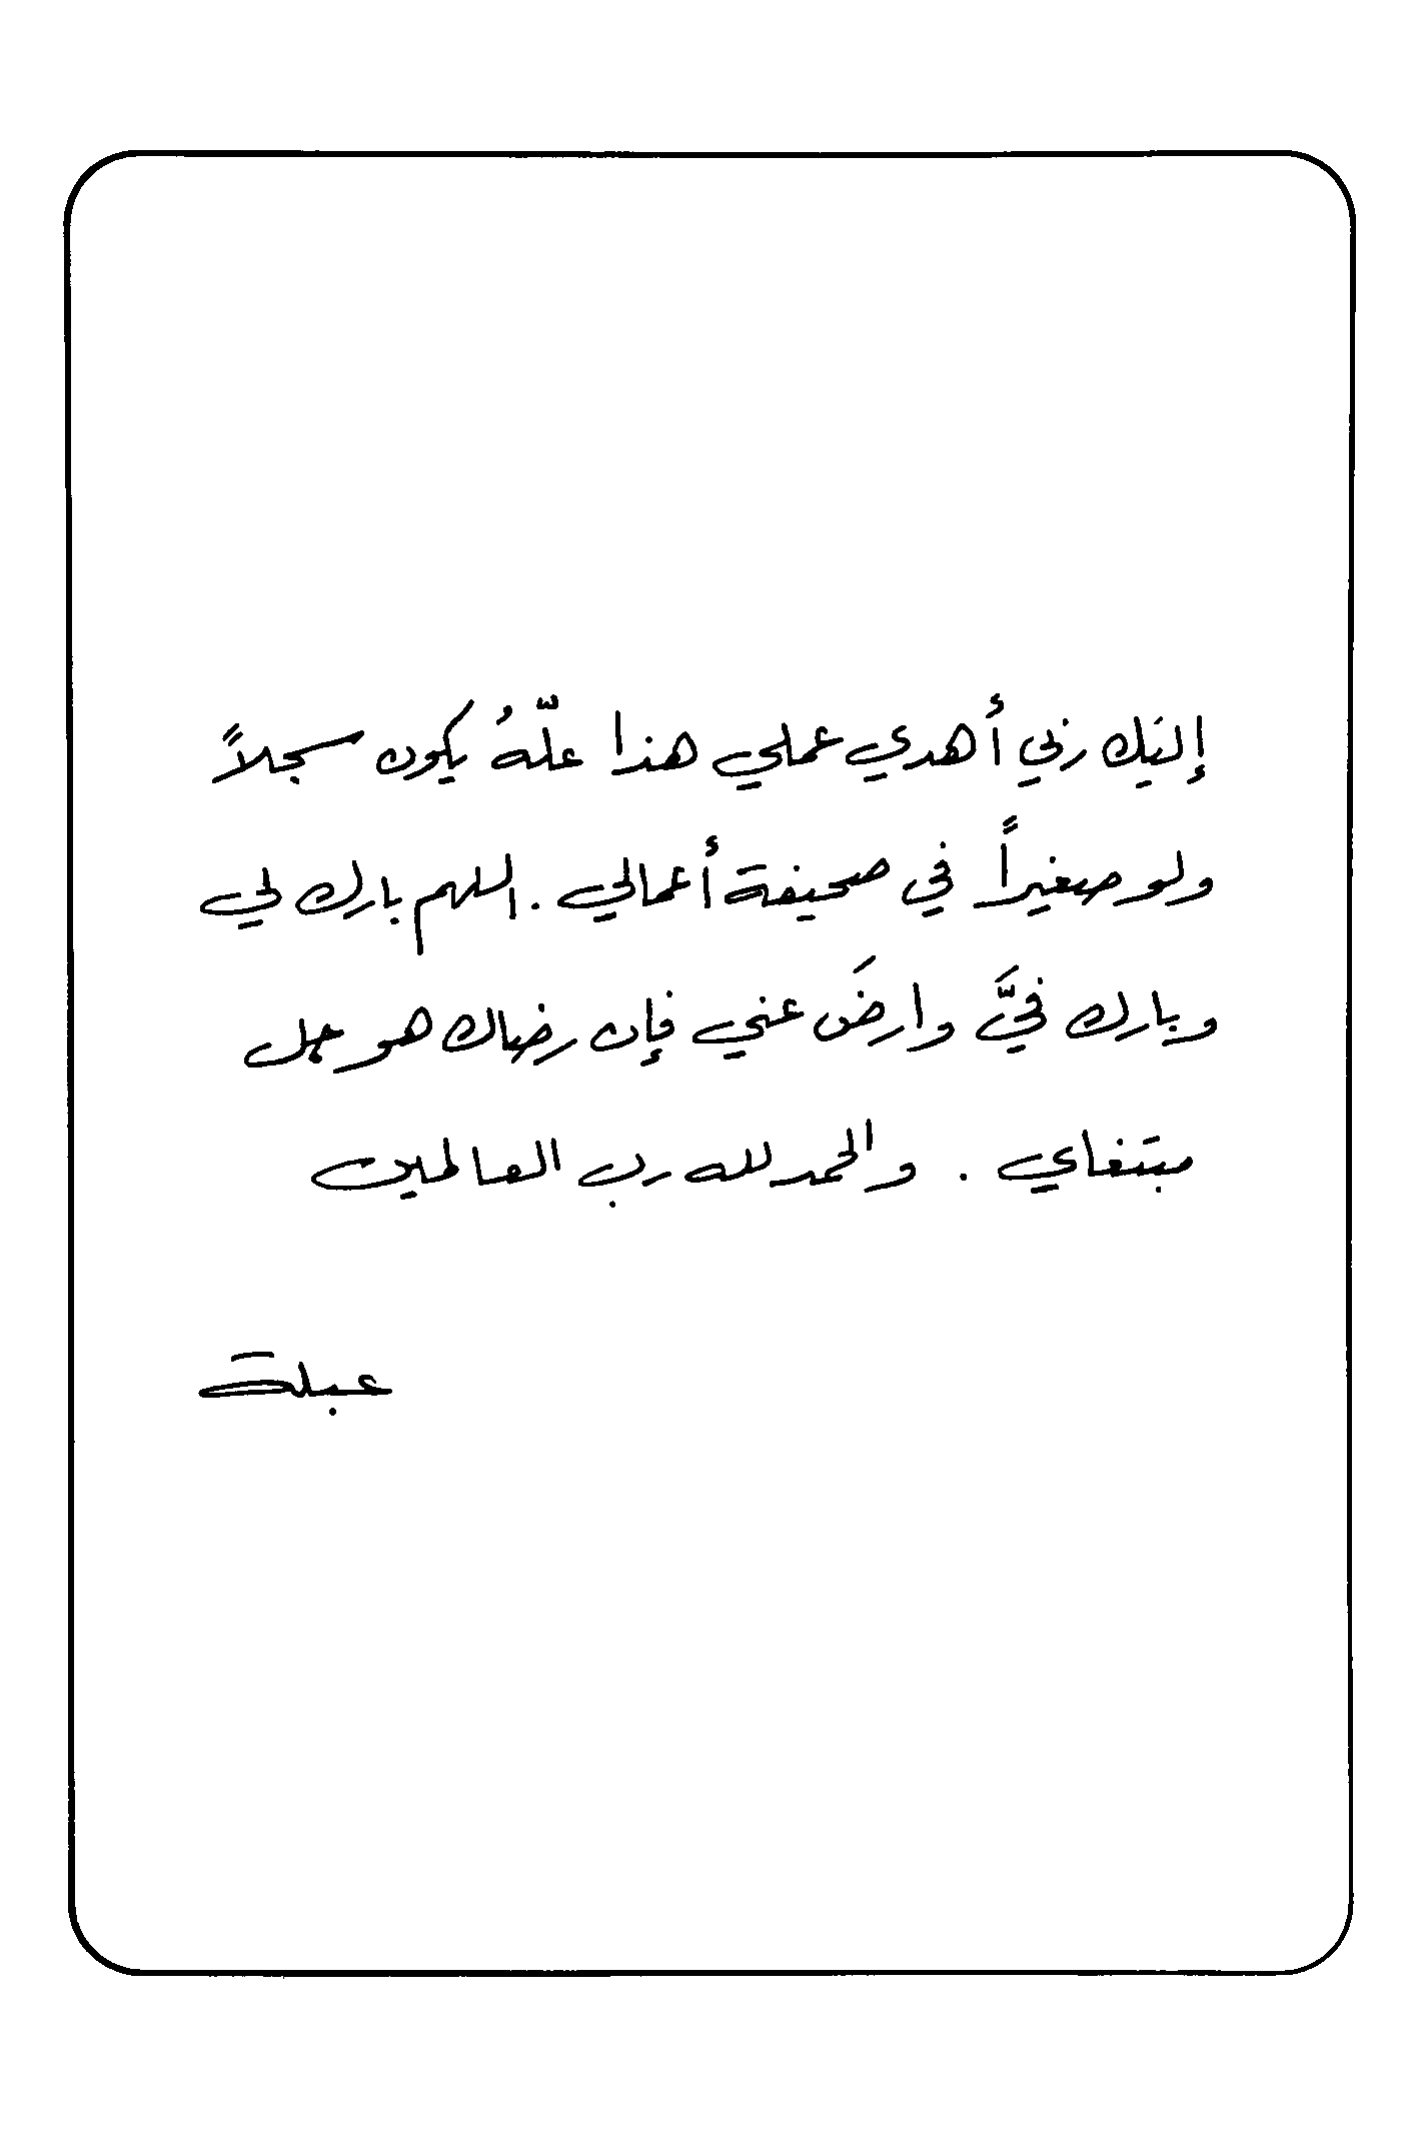 إليَك ربي أهدي عملي هذا علّهُ يكون سجلاً
ولو صغيراً في صحيفة أعمالي . اللهم بارك لي
وبارك فيَّ وارضَ عني فإن رضاك هو جل
مبتغاي . والحمد لله رب العالمين
عبلة